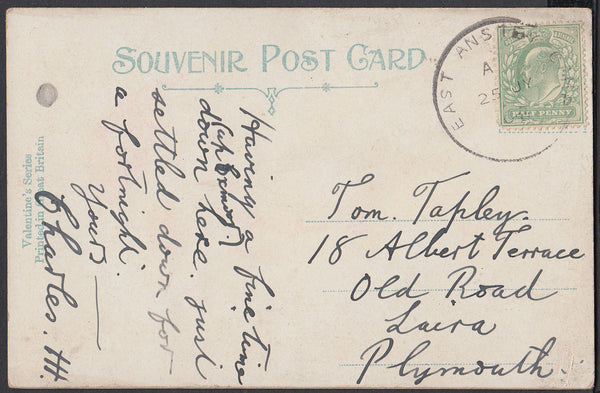 SOUVENIR POST CARD
EAST ANSTEY
A
25 JY
HALF PENNY
Valentine's Series
Printed in Great Britain
Having a fine time
(at Exmoor)
down here. just
settled down for
a fortnight.
Yours —
Charles. HH.
Tom. Tapley.
18 Albert Terrace
Old Road
Laira
Plymouth.